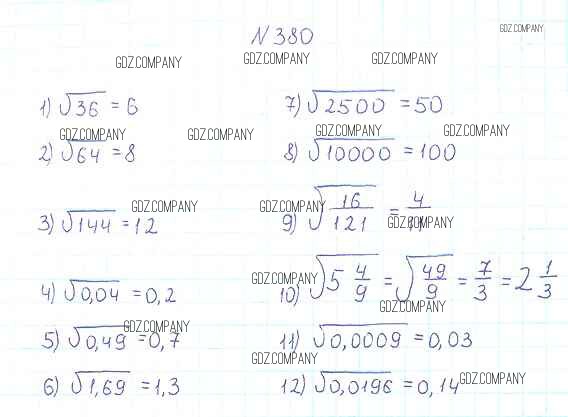 N 380
GDZ.COMPANY
GDZ.COMPANY GDZ.COMPANY GDZ.COMPANY
1) √36 = 6
7) √2500 = 50
GDZ.COMPANY GDZ.COMPANY GDZ.COMPANY GDZ.COMPANY
2) √64 = 8
8) √10000 = 100
GDZ.COMPANY GDZ.COMPANY GDZ.COMPANY
3) √144 = 12
9) √16/121 = 4/11
GDZ.COMPANY GDZ.COMPANY
4) √0,04 = 0,2
10) √5 4/9 = √49/9 = 7/3 = 2 1/3
GDZ.COMPANY GDZ.COMPANY
5) √0,49 = 0,7
11) √0,0009 = 0,03
GDZ.COMPANY GDZ.COMPANY
6) √1,69 = 1,3
12) √0,0196 = 0,14